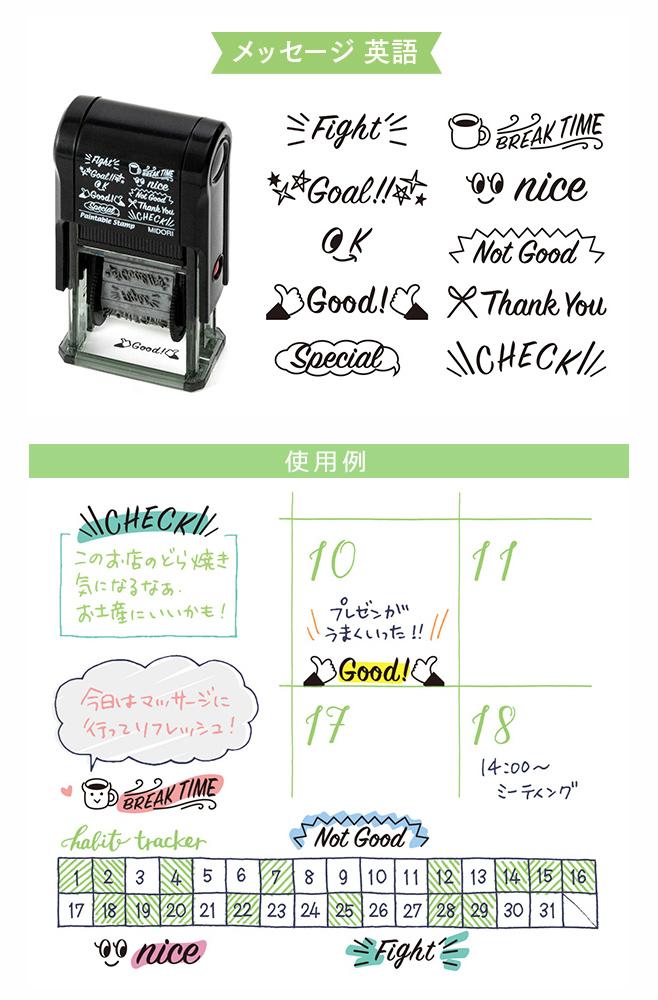 メッセージ 英語
Fight
BREAK TIME
Goal!!
nice
OK
Not Good
Good!
Thank You
Special
CHECK
Fight
BREAK TIME
Goal!!
nice
OK
Not Good
Good!
Thank You
Special
CHECK
Paintable Stamp
MIDORI
Good!
使用例
CHECK
このお店のどら焼き
気になるなぁ.
お土産にいいかも!
今日はマッサージに
行ってリフレッシュ!
BREAK TIME
10
11
プレゼンが
うまくいった!!
Good!
17
18
14:00～
ミーティング
habit tracker
Not Good
1 2 3 4 5 6 7 8 9 10 11 12 13 14 15 16
17 18 19 20 21 22 23 24 25 26 27 28 29 30 31
nice
Fight